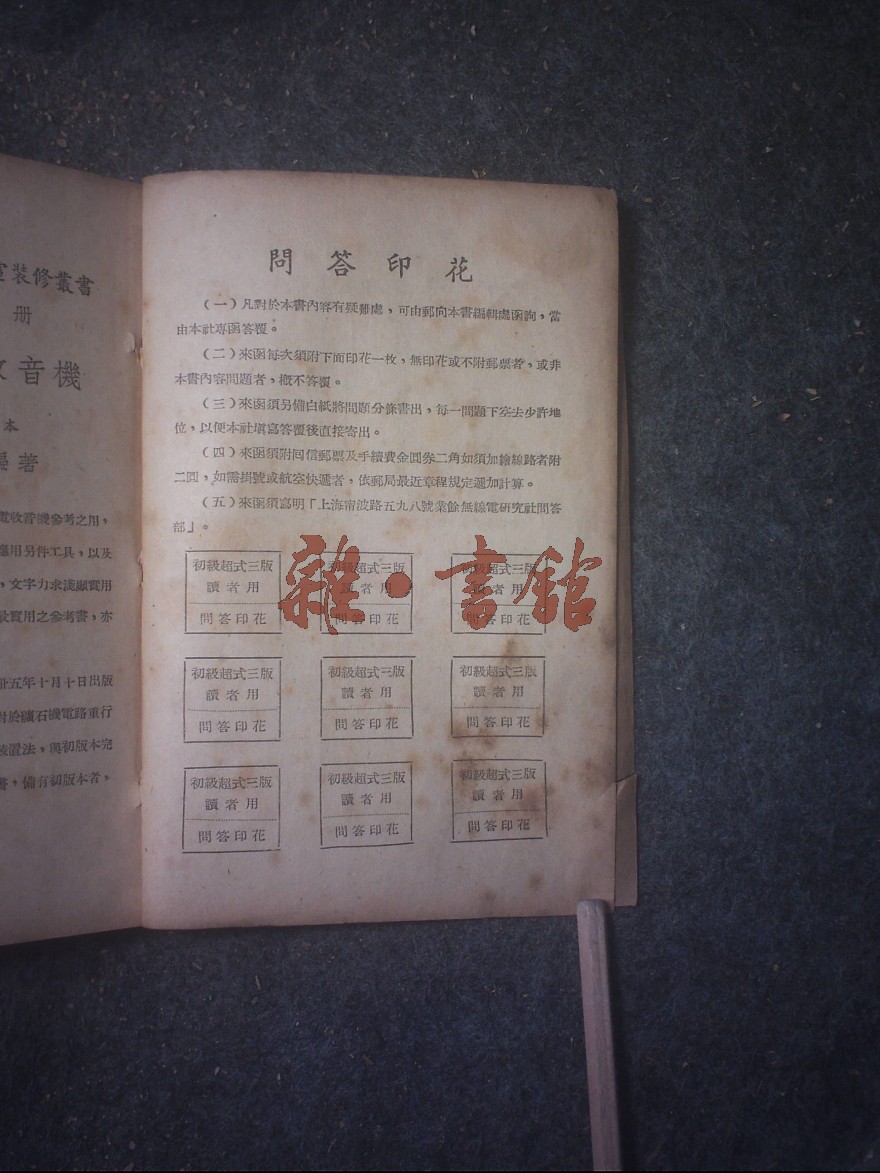 裝修叢書
册
音機
本
著
電收音機參考之用，
應用另件工具，以及
，文字力求淺顯實用
最實用之參考書，亦
五年十月十日出版
對於礦石機電路重行
裝置法，與初版本完
書，備有初版本者，
問答印花
（一）凡對於本書內容有疑難處，可由郵向本書編輯處函詢，當
由本社專函答覆。
（二）來函每次須附下面印花一枚，無印花或不附郵票者，或非
本書內容問題者，概不答覆。
（三）來函須另備白紙將問題分條書出，每一問題下空去少許地
位，以便本社填寫答覆後直接寄出。
（四）來函須附回信郵票及手續費金圓券二角如須加繪線路者附
二圓，如需掛號或航空快遞者，依郵局最近章程規定遞加計算。
（五）來函須寫明「上海南波路五九八號業餘無線電研究社問答
部」。
初級超式三版 初級超式三版 初級超式三版
讀者用 讀者用 讀者用
問答印花 問答印花 問答印花
雜·書館
初級超式三版 初級超式三版 初級超式三版
讀者用 讀者用 讀者用
問答印花 問答印花 問答印花
初級超式三版 初級超式三版 初級超式三版
讀者用 讀者用 讀者用
問答印花 問答印花 問答印花